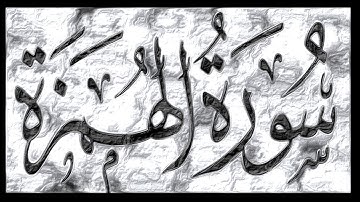 سُورَةُ الهُمَزَة